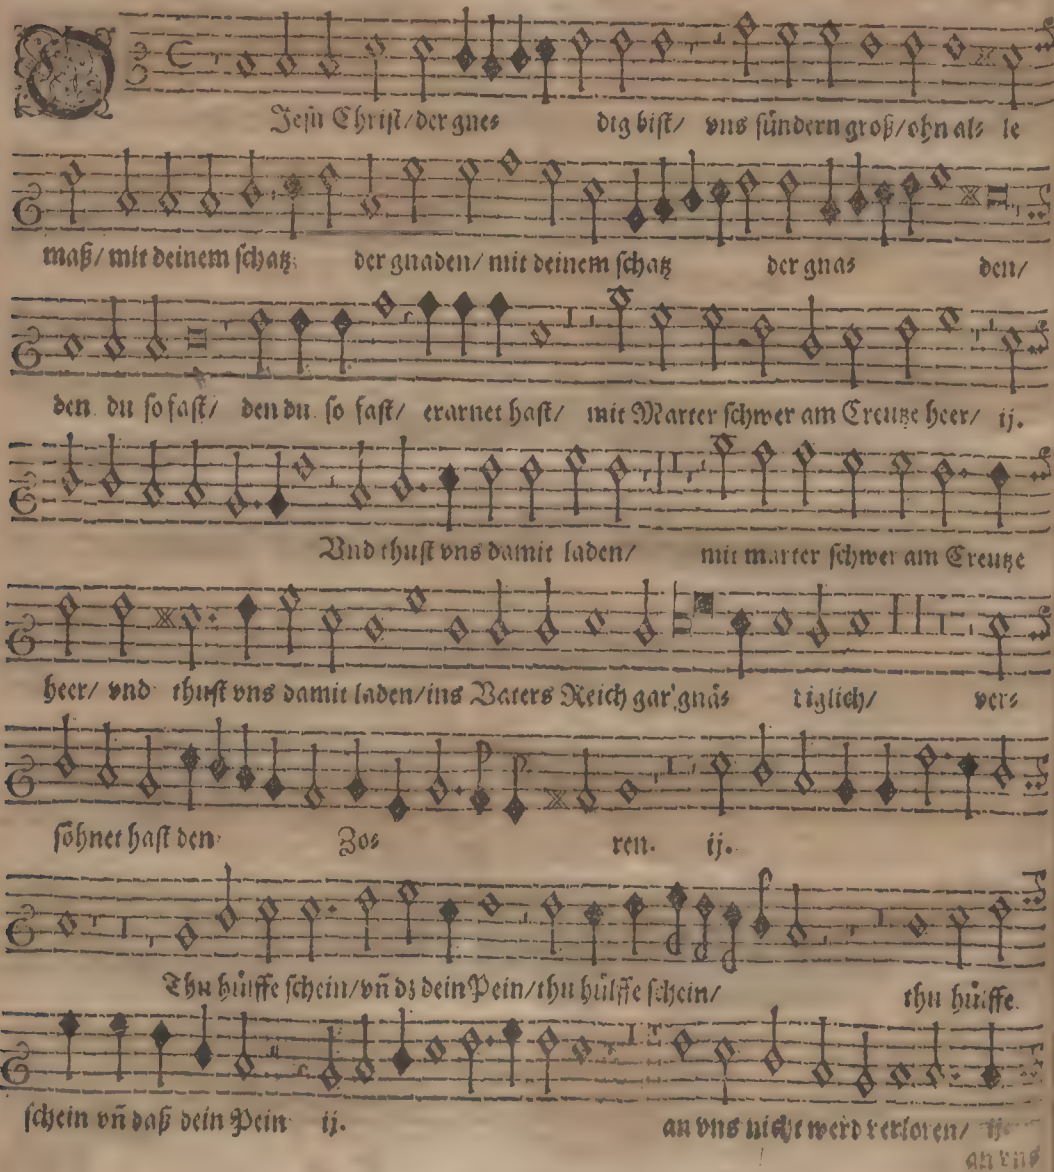 O
Jesu Christ/der gne⸗ dig bist/ vns sündern groß/ohn al⸗ le
maß/ mit deinem schatz der gnaden/ mit deinem schatz der gna⸗ den/
den du so fast/ den du so fast/ erarnet hast/ mit Marter schwer am Creutze heer/ ij.
Vnd thust vns damit laden/ mit marter schwer am Creutze
heer/ vnd thust vns damit laden/ins Vaters Reich gar gnå⸗ diglich/ ver⸗
söhnet hast den Zo⸗ ren. ij.
Thu hůlffe schein/vn̄ dz dein Pein/thu hůlffe schein/ thu hůlffe
schein vn̄ daß dein Pein ij. an vns nicht werd verloren/ ij.
an vns